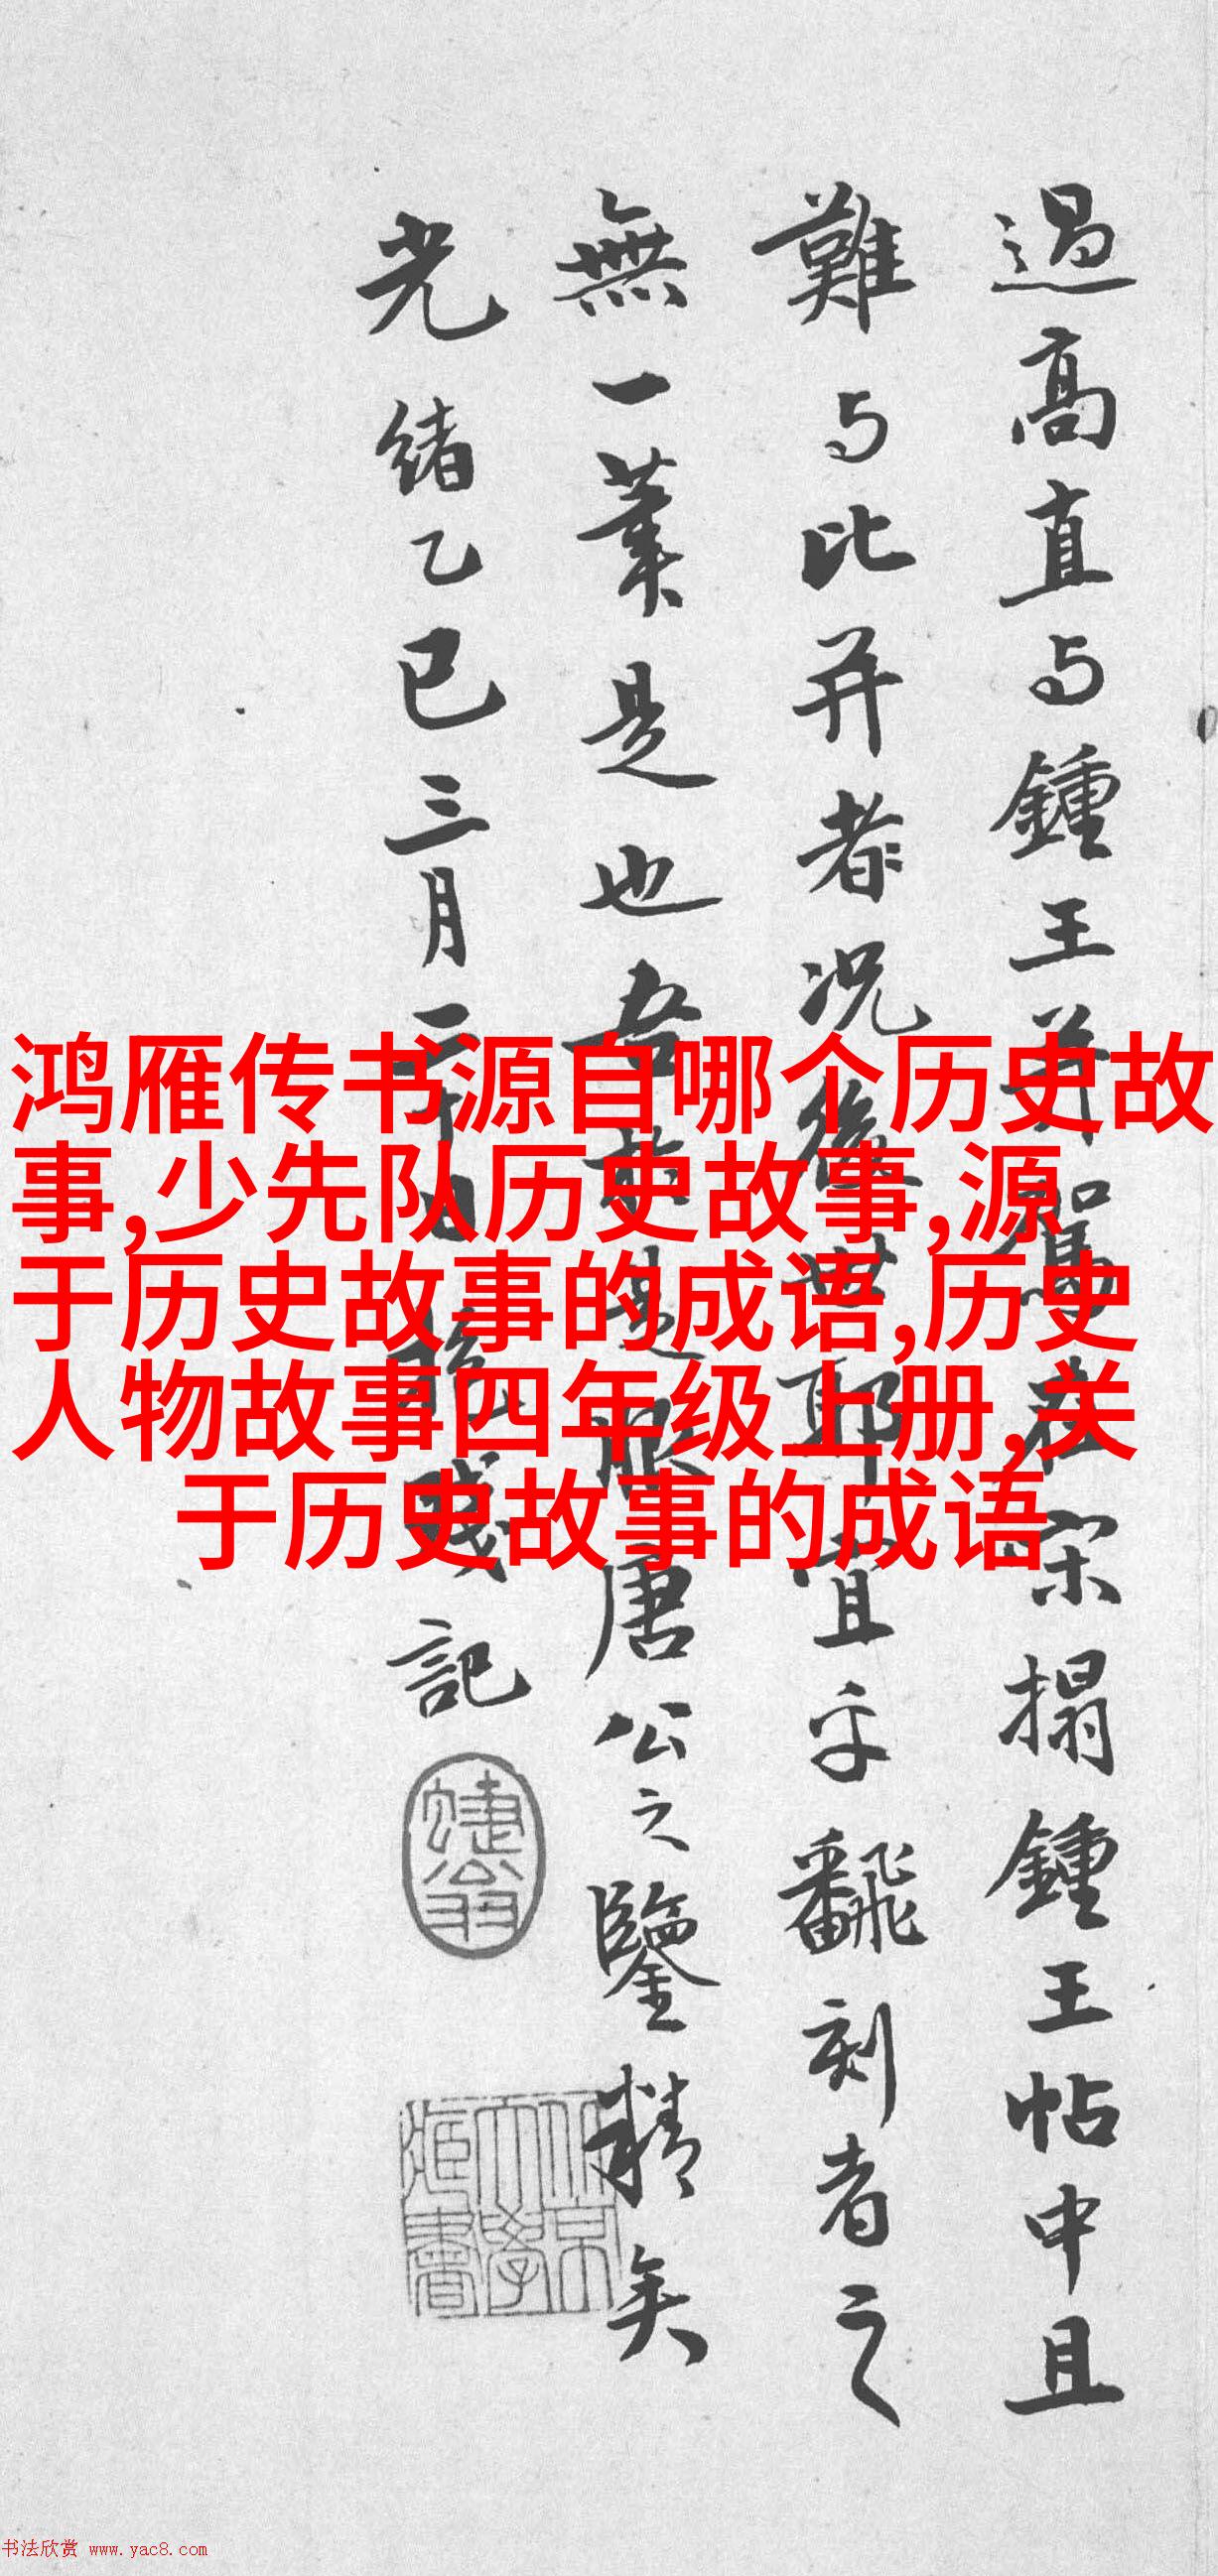 過高直与鍾王并駕在宋搨鍾王帖中且
難与比并者况後世耶宜乎翻刻者之
無一葉是也吾於是服唐公之鑒精矣
光緒乙巳三月二十日
記
鸿雁传书源自哪个历史故
事,少先队历史故事,源
于历史故事的成语,历史
人物故事四年级上册,关
于历史故事的成语
书法欣赏 www.yac8.com